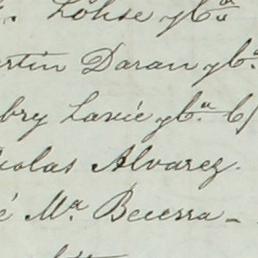 Lohse yb.ª
rtin Daran yb.ª
bry Lavié yb.ª 65
colas Alvarez.
é M.ª Becerra -